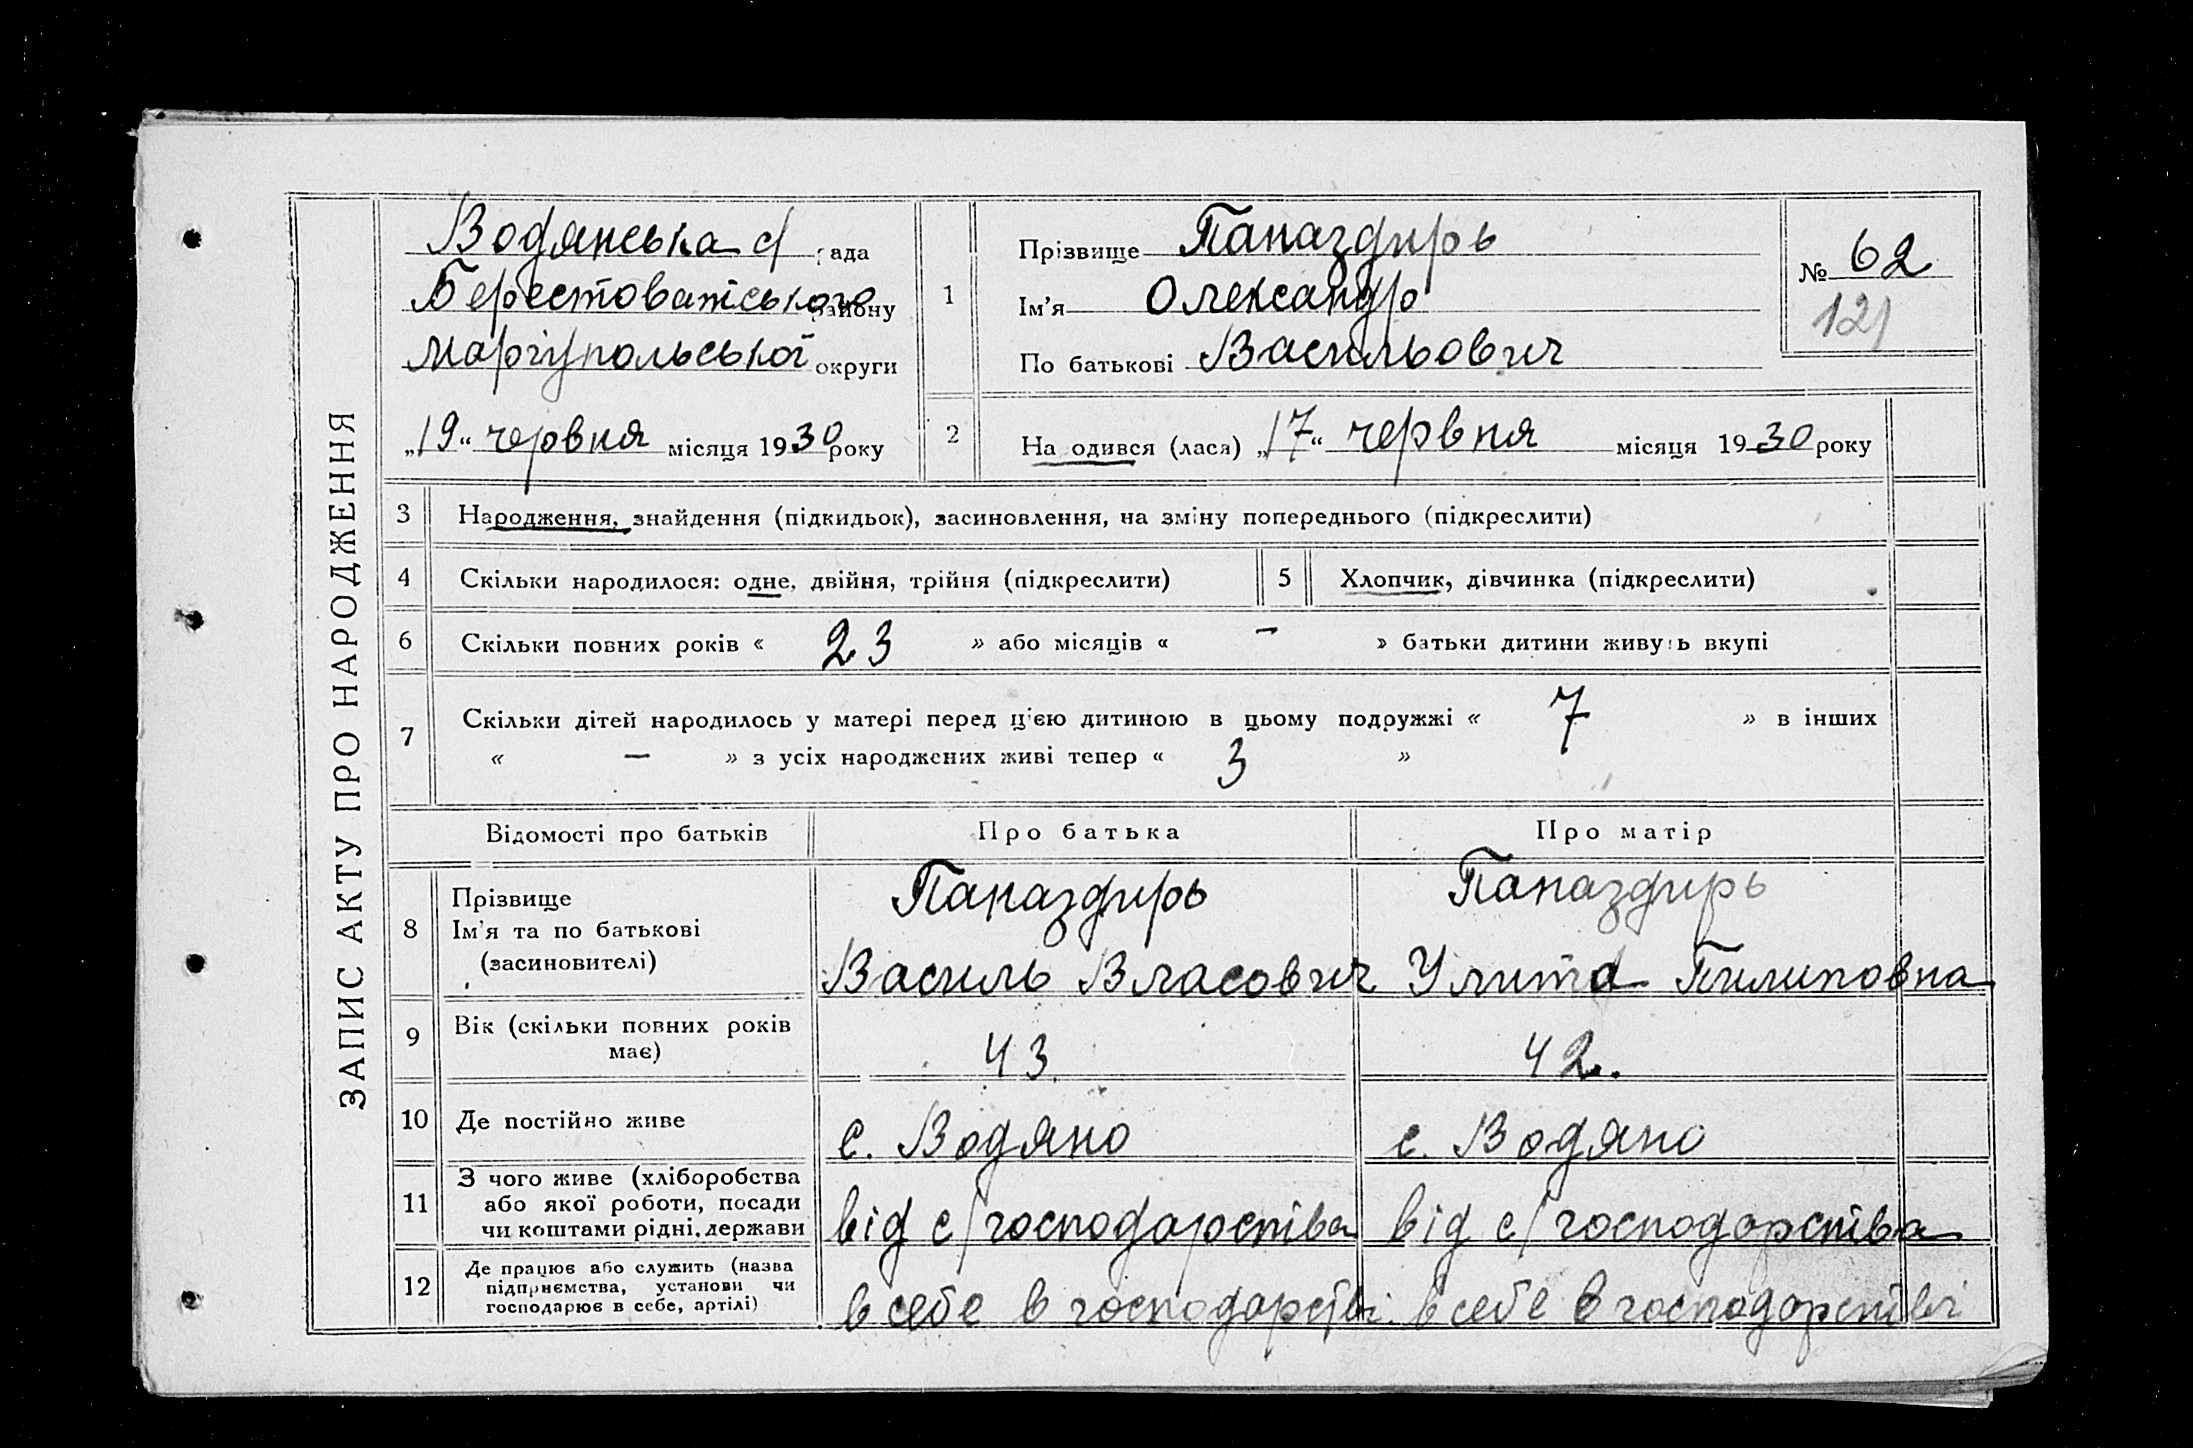 ЗАПИС АКТУ ПРО НАРОДЖЕННЯ
Водянська с/ рада
Берестоватського району
Маріупольської округи
„19“ червня місяця 1930 року
1
Прізвище Папаздирь
Ім’я Олександр
По батькові Васильович
№ 62
121
2
На одився (лася) „17“ червня місяця 1930 року
3 Народження, знайдення (підкидьок), засиновлення, на зміну попереднього (підкреслити)
4 Скільки народилося: одне, двійня, трійня (підкреслити) 5 Хлопчик, дівчинка (підкреслити)
6 Скільки повних років « 23 » або місяців « — » батьки дитини живуть вкупі
7 Скільки дітей народилось у матері перед цією дитиною в цьому подружжі « 7 » в інших
« — » з усіх народжених живі тепер « 3 »
Відомості про батьків Про батька Про матір
8 Прізвище
Ім’я та по батькові
(засиновителі)
Папаздирь
Василь Власович
Папаздирь
Улита Пилиповна
9 Вік (скільки повних років
має)
43
42.
10 Де постійно живе с. Водяно с. Водяно
11 З чого живе (хліборобства
або якої роботи, посади
чи коштами рідні, держави
від с/господарства від с/господарства
12 Де працює або служить (назва
підприємства, установи чи
господарює в себе, артілі)
в себе в господарстві. в себе в господарстві